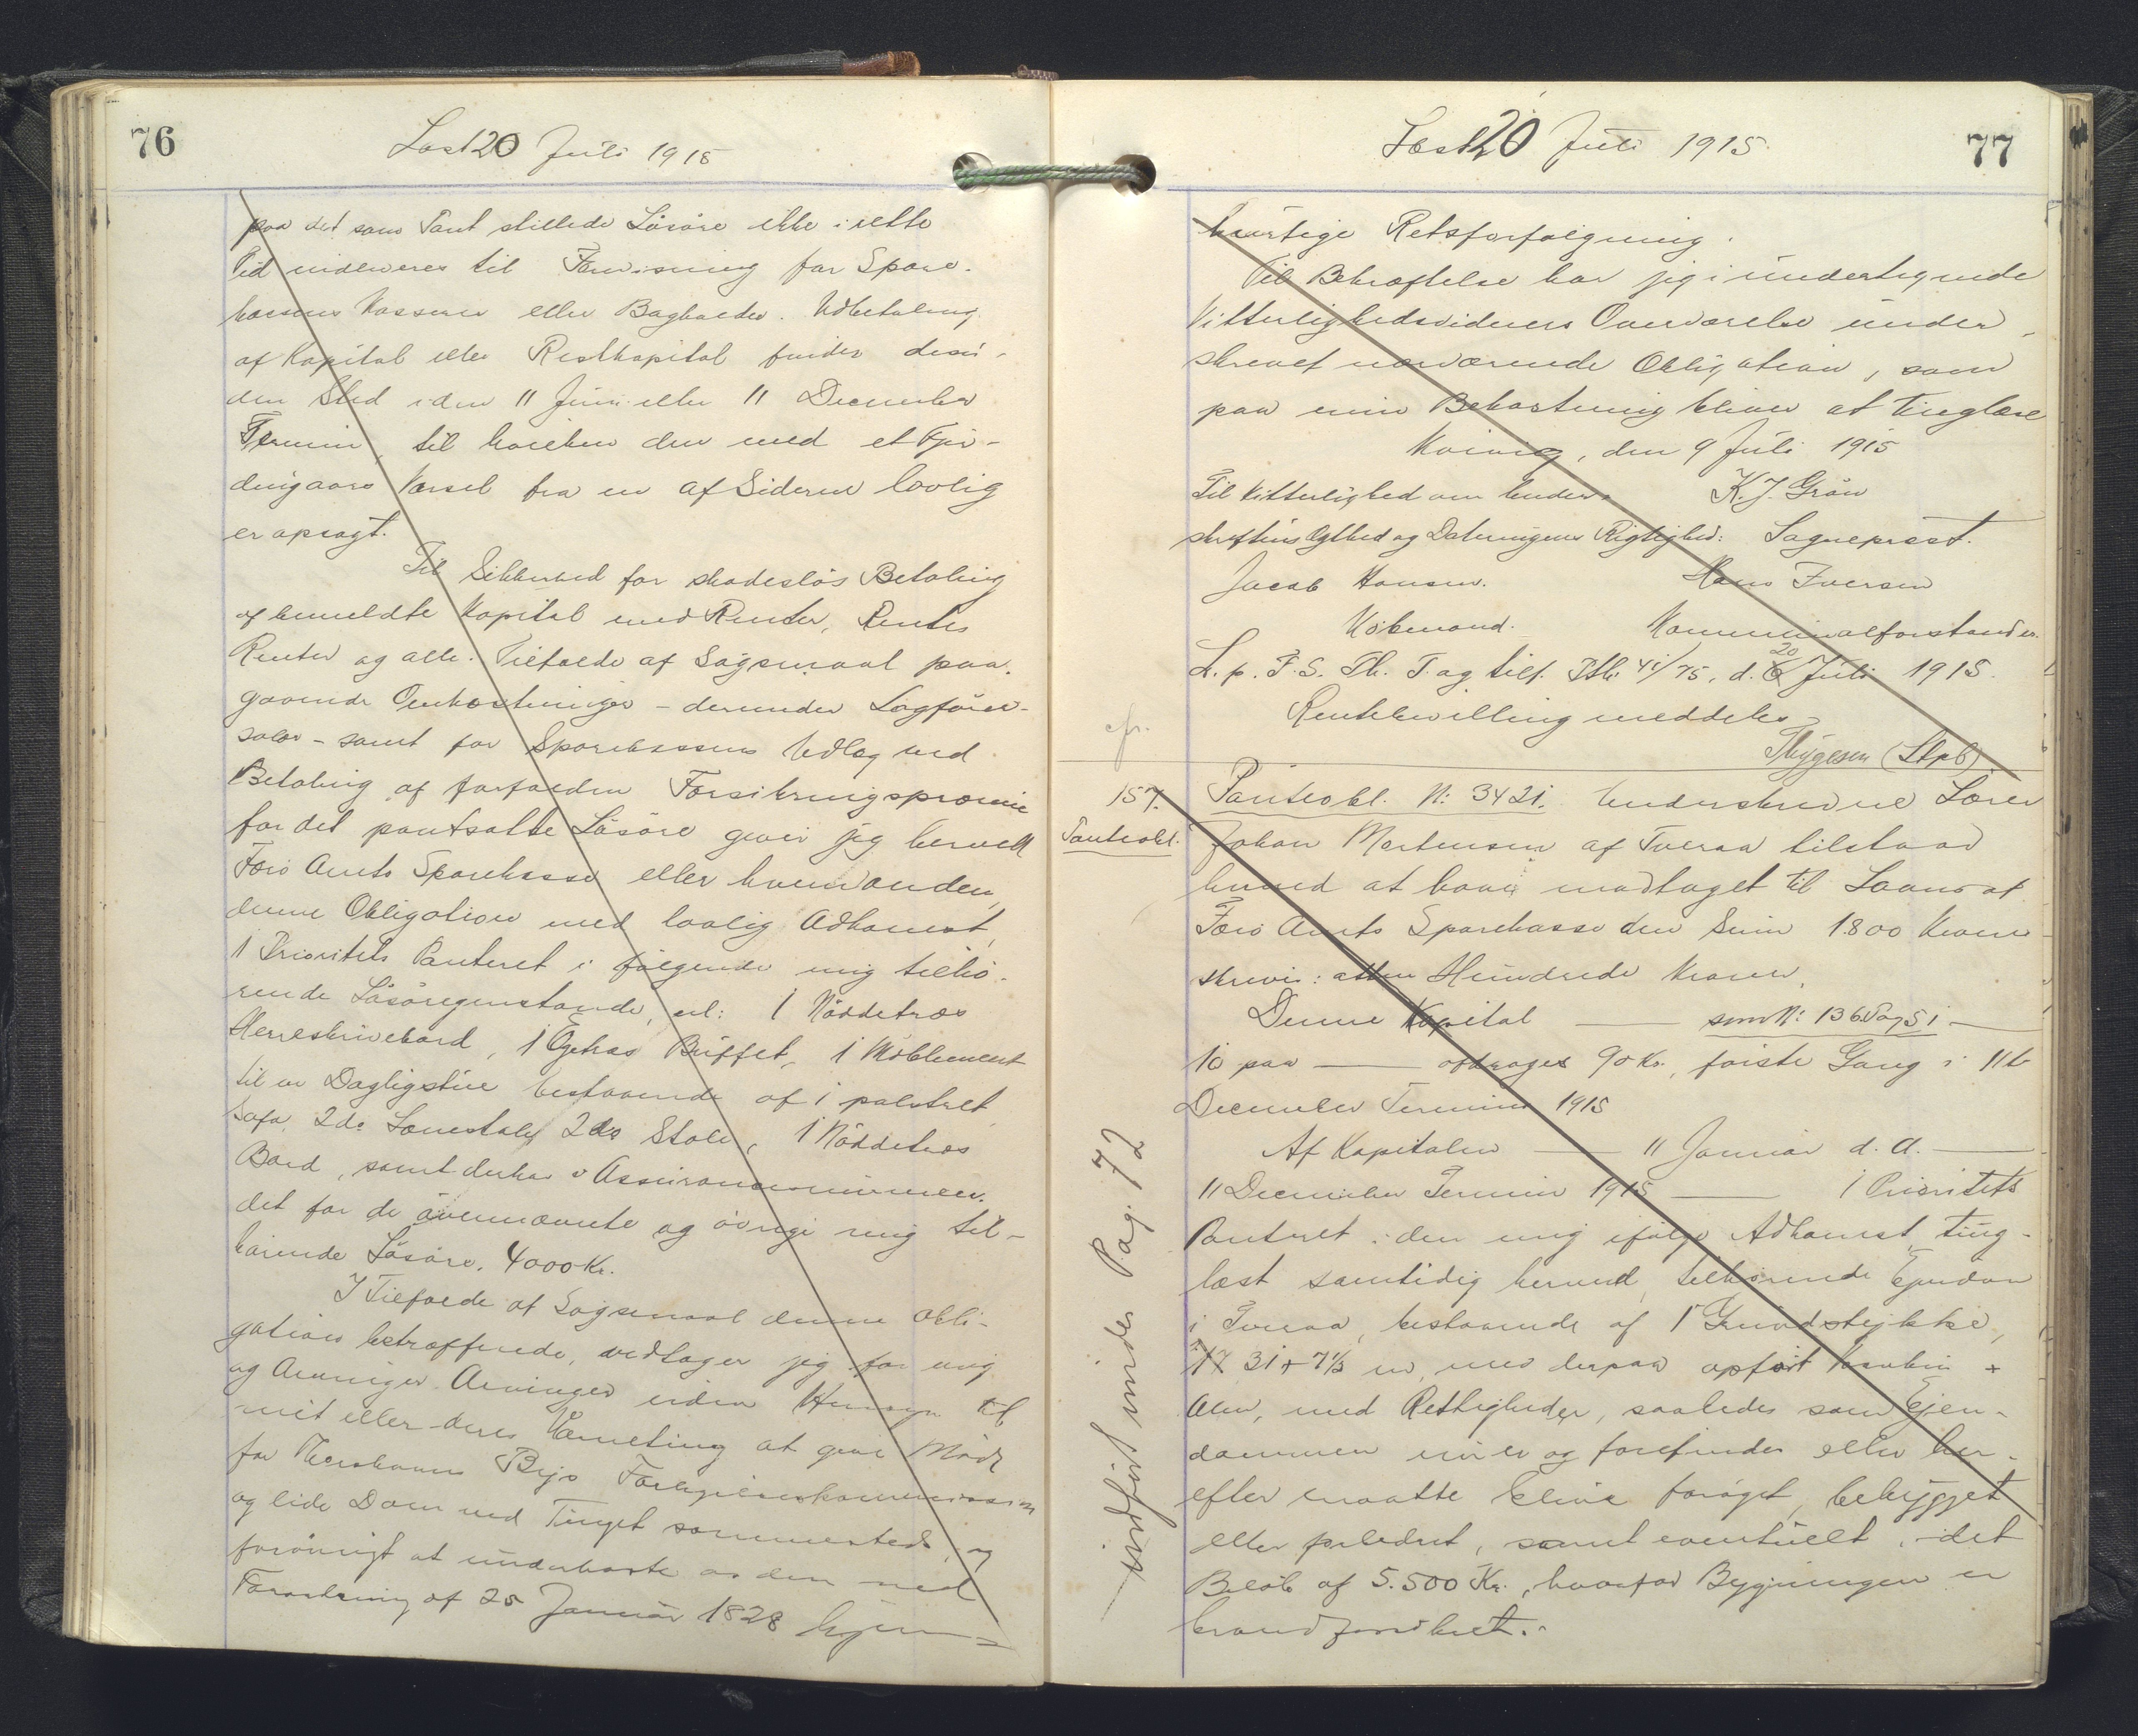 76
Læst 20 Juli 1915
paa det som Pant stillede Løsøre ikke i rette
Tid indleveres til Forevisning for Spare-
kassens Kasserer eller Bogholder. Udbetaling
af Kapital eller Restkapital finder desu-
den Sted i den 11 Juni eller 11 December
Termin, til hvilken den med et Fjer-
dingaars Varsel fra en af Siderne lovlig
er opsagt.
Til Sikkerhed for skadesløs Betaling
af bemeldte Kapital med Renter, Rentes
Renter og alle i Tilfælde af Søgsmaal paa-
gaaende Omkostninger - derunder Sagfører-
salær - samt for Sparekassens Udlæg ved
Betaling af forfalden Forsikringspræmie
for det pantsatte Løsøre giver jeg herved
Færø Amts Sparekasse eller hvem anden
denne Obligation med lovlig Adkomst,
1 Prioritets Panteret i følgende mig tilhø-
rende Løsøregenstande, nl: 1 Nøddetræs
Herreskrivebord, 1 Egetræs Buffet, 1 Møblement
til en Dagligstue bestaaende af 1 polstret
Sofa, 2 do Lænestole, 2 do Stole, 1 Nøddetræs
Bord, samt derhos i Assurancesummen
det for de ovennævnte og øvrige mig til-
hørende Løsøre, 4000 Kr.
I Tilfælde af Søgsmaal denne Obli-
gation betræffende, vedtager jeg for mig
og Arvinger Arvinger uden Hensyn til
mit eller deres Værneting at give Møde
for Thorshavns Byes Forligelseskommission
og lide Dom ved Tinget sammesteds, og
forøvrigt at underkaste os den ved
Forordning af 25 Januar 1828 hjem-
77
Læst 20 Juli 1915.
hurtige Retsforfølgning.
Til Bekræftelse har jeg i undertegnede
Vitterlighedsvidners Overværelse under-
skrevet nærværende Obligation, som
paa min Bekostning bliver at tinglæse
Kvivig, den 9 Juli 1915
Til Vitterlighed om Under- K. J. Grøn
skriftens Ægthed og Dateringens Rigtighed: Sognepræst.
Jacob Hansen. Hans Iversen
Købmand. Kommunalforstander.
L. p. F. S. Th. T. og tilf. Ptb. 41/75, d. 20 Juli 1915.
Rentebevilling meddeles
Thygesen (Stpl)
cfr.
157.
Panteobl.
Panteobl. N: 3421. Underskrevne Lærer
Johan Mortensen af Tveraa tilstaar
herved at have modtaget til Laans af
Færø Amts Sparekasse den Sum 1800 Kroner
skriver: atten Hundrede Kroner.
Denne Kapital — som N: 136 Pag 51 —
10 paa — afdrages 90 Kr., første Gang i 11te
December Termin 1915
Af Kapitalen — 11 Januar d. A. —
11 December Termin 1915 — 1 Prioritets
Panteret i den mig ifølge Adkomst, ting-
læst samtidig hermed, tilhørende Ejendom
i Tveraa, bestaaende af 1 Grundstykke,
31 + 7½ m, med derpaa opført Vaanhus +
Alen, med Rettigheder, saaledes som Ejen-
dommen nu er og forefindes eller her-
efter maatte blive forøget, bebygget
eller forbedret, samt eventuelt i det
Beløb af 5.500 Kr., hvorfor Bygningen er
brandforsikret.
— indført under Pag. 72